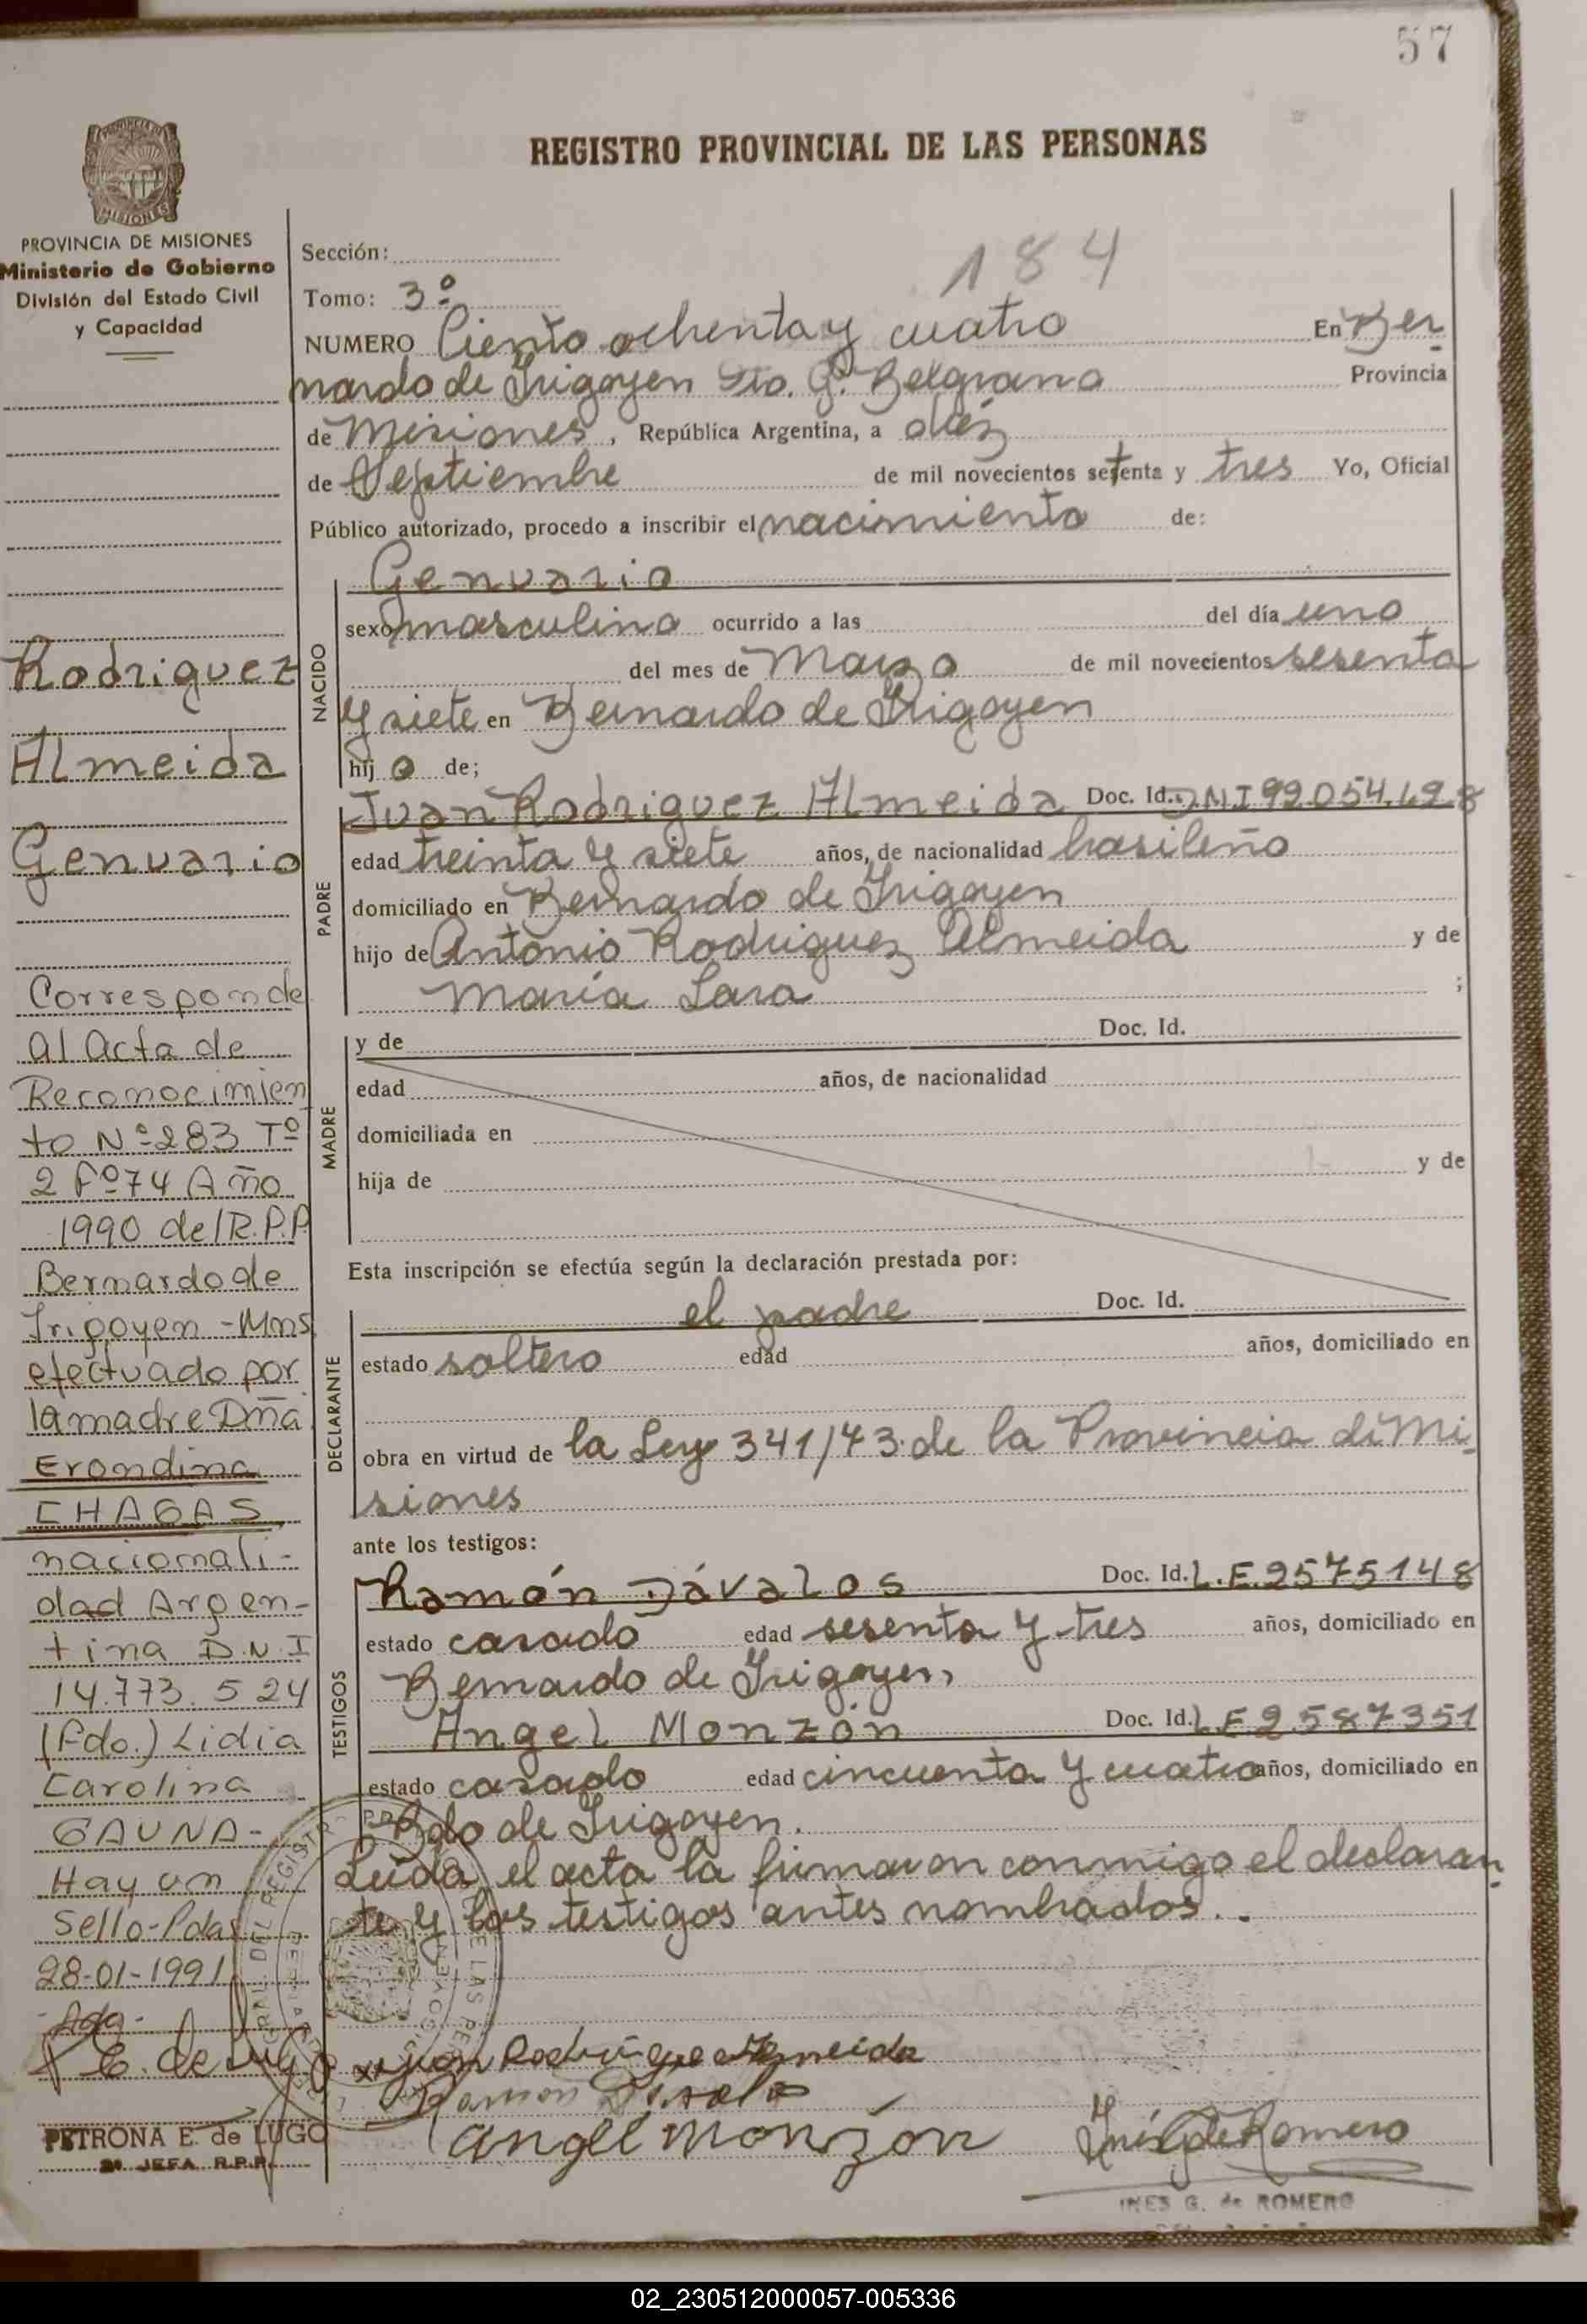 57
REGISTRO PROVINCIAL DE LAS PERSONAS
PROVINCIA DE MISIONES
Ministerio de Gobierno
División del Estado Civil
y Capacidad
Rodriguez
Almeida
Genuario
Corresponde
al Acta de
Reconocimien
to Nº 283 Tº
2 Fº 74 Año
1990 del R.P.P.
Bernardo de
Irigoyen - Mns
efectuado por
la madre Dña
Erondina
CHAGAS,
nacionali-
dad Argen-
tina D.N.I
14.773.524
(Fdo.) Lidia
Carolina
GAUNA-
Hay un
Sello-Pdas
28-01-1991
PETRONA E. de LUGO
2ª JEFA R.P.P.
Sección:
184
Tomo: 3º
NUMERO Ciento ochenta y cuatro En Ber
nardo de Irigoyen Dto. G. Belgrano Provincia
de Misiones, República Argentina, a diéz
de Septiembre de mil novecientos setenta y tres Yo, Oficial
Público autorizado, procedo a inscribir el nacimiento de:
NACIDO
Genuario
sexo masculino ocurrido a las del día uno
del mes de Marzo de mil novecientos sesenta
y siete en Bernardo de Irigoyen
hij o de;
PADRE
Juan Rodriguez Almeida Doc. Id. DNI 99.054.198
edad treinta y siete años, de nacionalidad brasileño
domiciliado en Bernardo de Irigoyen
hijo de Antonio Rodriguez Almeida y de
María Lara ;
MADRE
y de Doc. Id.
edad años, de nacionalidad
domiciliada en
hija de y de
Esta inscripción se efectúa según la declaración prestada por:
DECLARANTE
el padre Doc. Id.
estado soltero edad años, domiciliado en
obra en virtud de la Ley 341/73 de la Provincia de Mi
siones
ante los testigos:
TESTIGOS
Ramón Dávalos Doc. Id. L.E. 2575148
estado casado edad sesenta y tres años, domiciliado en
Bernardo de Irigoyen
Angel Monzón Doc. Id. L.E 2587351
estado casado edad cincuenta y cuatro años, domiciliado en
Bdo de Irigoyen.
Leída el acta la firmaron conmigo el declaran
te y los testigos antes nombrados..
Juan Rodriguez Almeida
Ramon Davalo
Angel Monzon
Inés G de Romero
INES G. de ROMERO
02_230512000057-005336